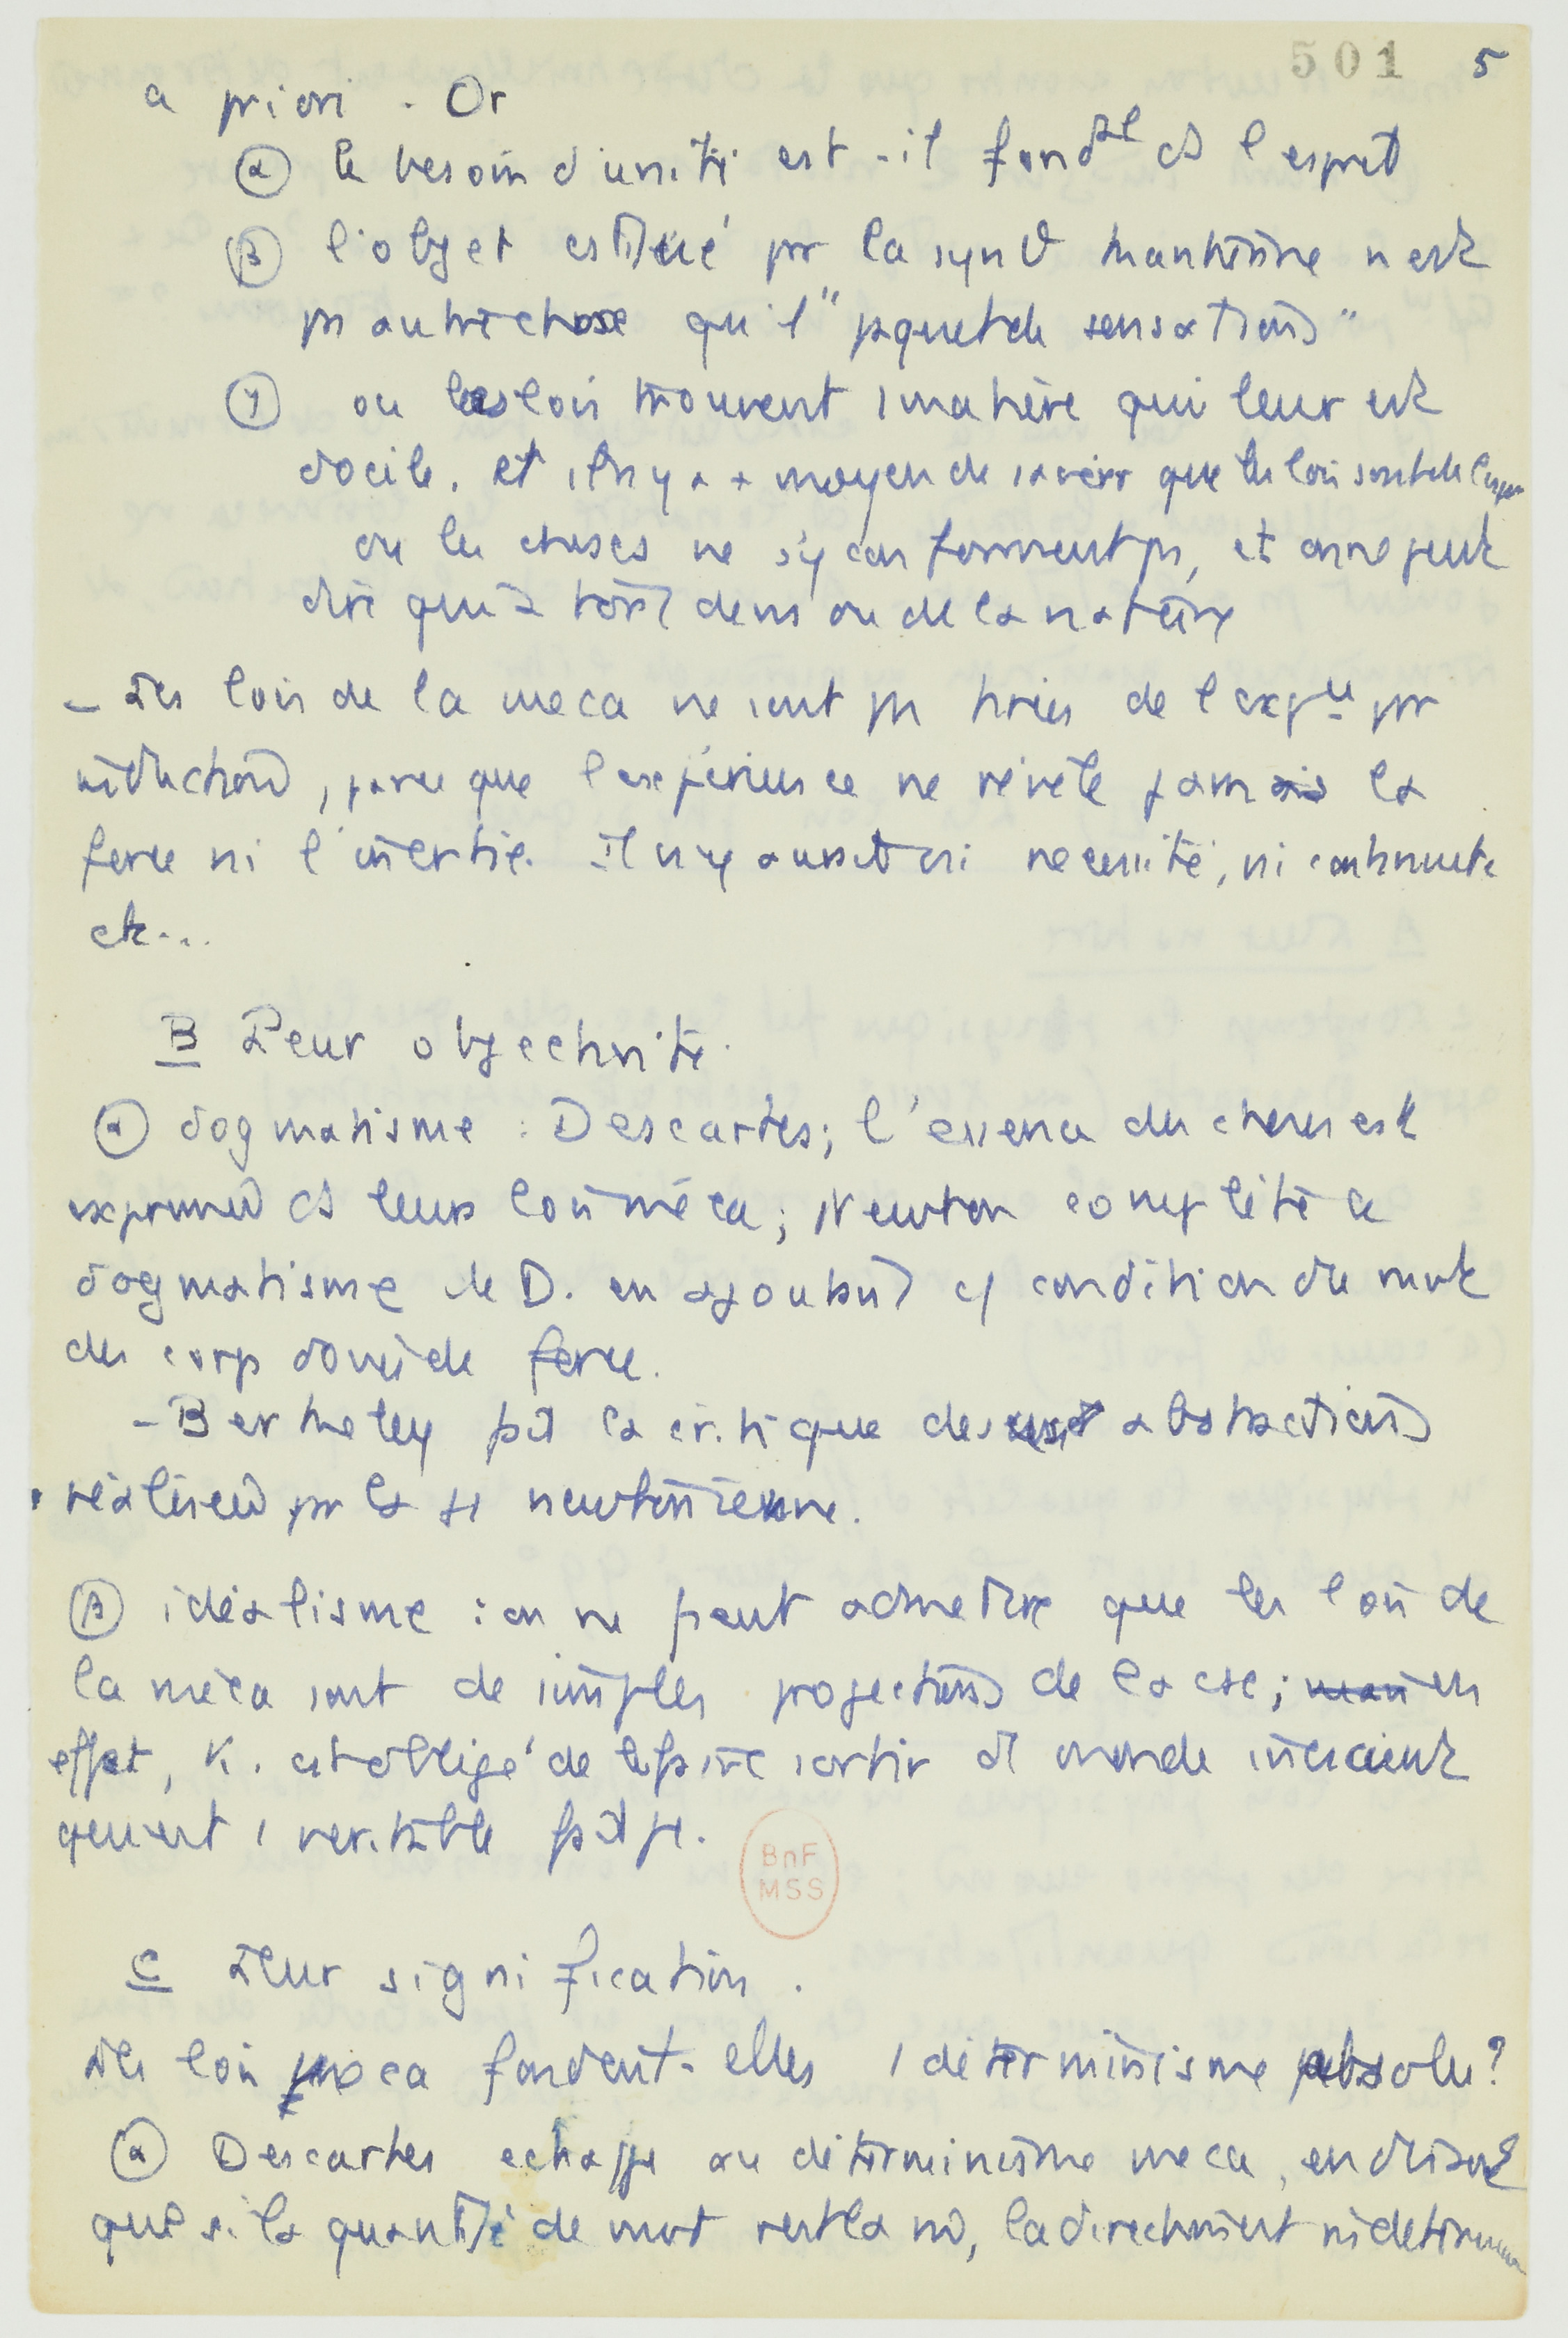 501 5
a priori. Or
α le besoin d'unité est-il fondal ds l'esprit
β l'objet estitué pr la synth kantienne n'est
ps autre chose qu'1 "paquet de sensations"
γ ou les lois trouvent 1 matière qui leur est
docile, et il n'y a + moyen de savoir que les lois sont de l'esprit
ou les choses ne s'y conforment ps, et on ne peut
dire qu'à tort de la nature
- Les lois de la meca ne sont ps tirées de l'expce pr
induction, parce que l'expérience ne révèle jamais la
force ni l'inertie. Il n'y a ni necessité, ni continuité
etc...
B Leur objectivité.
α dogmatisme : Descartes; l'essence des choses est
exprimée ds leurs lois méca; Newton complète le
dogmatisme de D. en ajoutant c/ condition du mvt
des corps doués de force.
- Berkeley fait la critique des abstractions
réalisées pr la newtonienne.
β idéalisme : on ne peut admettre que les lois de
la méca sont de simples projections de la csc; en
effet, K. est obligé de le faire sortir d'1 monde inconscient
qui est 1 veritable
BnF
MSS
C Leur signification.
Les lois meca fondent-elles 1 déterminisme absolu?
α Descartes echappe au déterminisme meca, en disant
que si la quantité de mvt rest la m̂, la direction est indéterminée